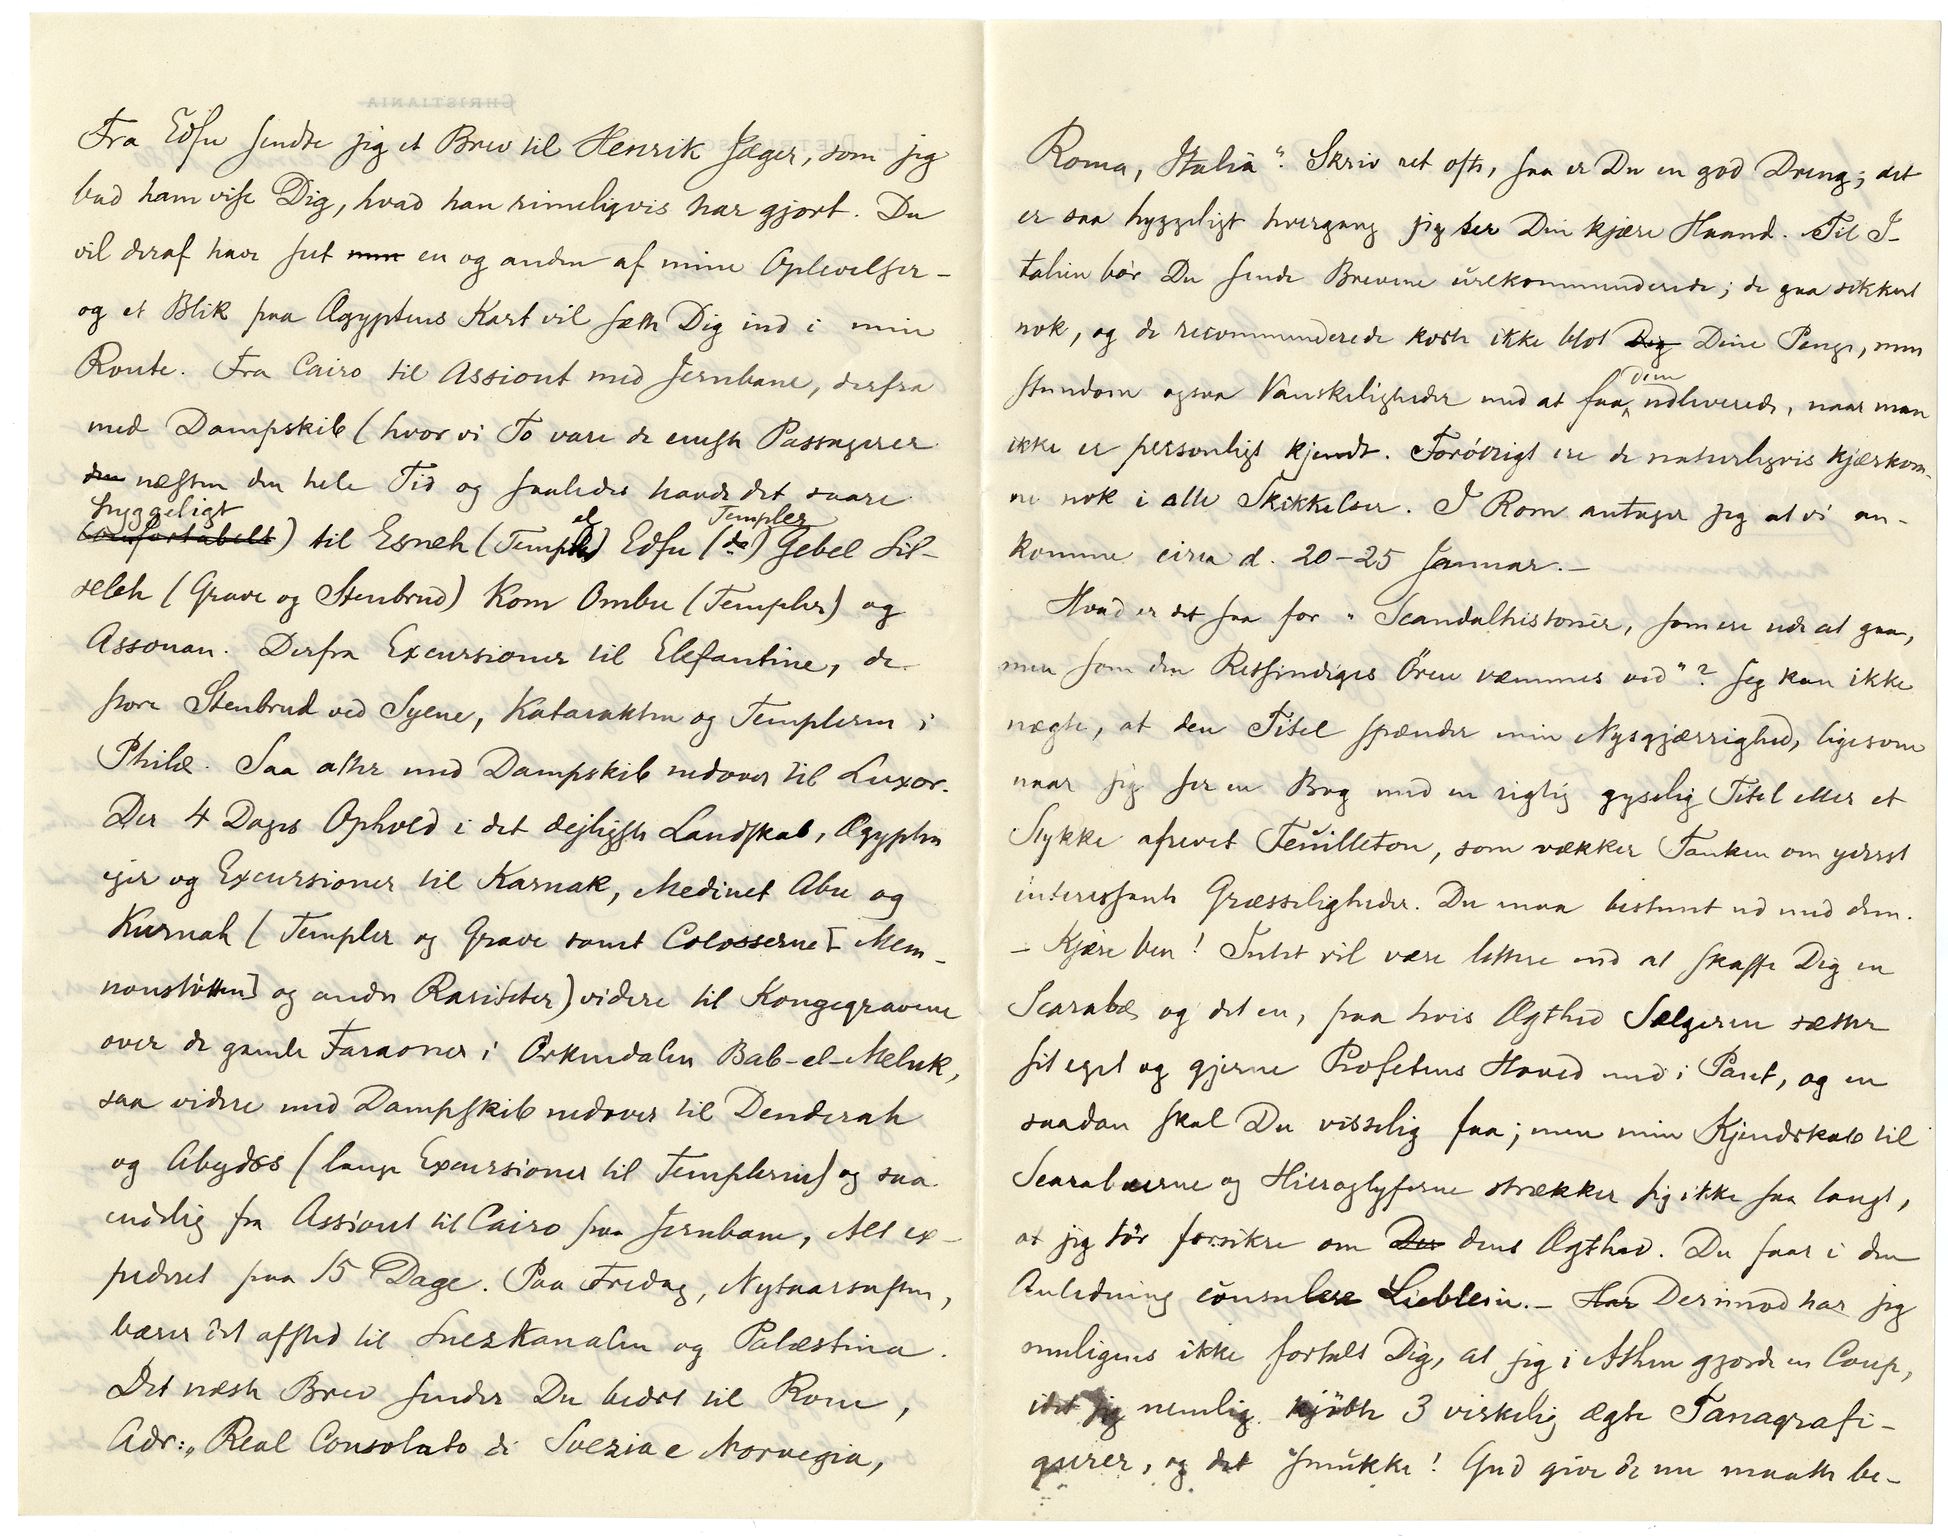 Fra Edfu sendte jeg et Brev til Henrik Jæger, som jeg
bad ham vise Dig, hvad han rimeligvis har gjort. Du
vil deraf have seet en og anden af mine Oplevelser –
og et Blik paa Ægyptens Kart vil sætte Dig ind i min
Route. Fra Cairo til Assiout med Jernbane, derfra
med Dampskib (hvor vi To vare de eneste Passagerer
den næsten den hele Tid og saaledes havde det saare
hyggeligt
comfortabelt) til Esneh (Tempel) Edfu (do Templer) Gebel Sil-
seleh (Grave og Stenbrud) Kom Ombu (Templer) og
Assouan. Derfra Excursioner til Elefantine, de
store Stenbrud ved Syene, Katarakten og Templerne i
Philæ. Saa atter med Dampskib nedover til Luxor.
Der 4 Dages Ophold i det dejligste Landskab, Ægypten
ejer og Excursioner til Karnak, Medinet Abu og
Kurnah (Templer og Grave samt Colosserne [Mem-
nonstøtten] og andre Rariteter) videre til Kongegravene
over de gamle Faraoner i Ørkendalen Bab-el-Meluk,
saa videre med Dampskib nedover til Denderah
og Abydos (lange Excursioner til Templerne) og saa
endelig fra Assiout til Cairo paa Jernbane, Alt ex-
pederet paa 15 Dage. Paa Fredag, Nytaarsaften,
bærer det afsted til Suezkanalen og Palæstina.
Det næste Brev sender Du bedst til Rom,
Adr: „Real Consolato di Svezia e Norvegia,
Roma, Italia“. Skriv ret ofte, saa er Du en god Dreng; det
er saa hyggeligt hvergang jeg ser Din kjære Haand. Til I-
talien bør Du sende Brevene urekommanderede; de gaa sikkert
nok, og de recommanderede koste ikke blot Dig Dine Penge, men
stundom ogsaa Vanskeligheder med at faa dem udleverede, naar man
ikke er personligt kjendt. Forøvrigt ere de naturligvis kjærkom-
ne nok i alle Skikkelser. I Rom antager jeg at vi an-
komme circa d. 20–25 Januar. –
Hvad er det saa for „Scandalhistorier, som ere ude at gaa,
men som den Retsindiges Øren væmmes ved“? Jeg kan ikke
nægte, at den Titel spænder min Nysgjærrighed, ligesom
naar jeg ser en Bog med en rigtig gyselig Titel eller et
Stykke afrevet Feuilleton, som vækker Tanken om yderst
interessante Græsseligheder. Du maa bestemt ud med dem.
– Kjære Ven! Intet vil være lettere end at skaffe Dig en
Scarabæ og det en, paa hvis Ægthed Sælgeren sætter
sit eget og gjerne Profetens Hoved med i Pant, og en
saadan skal Du visselig faa; men min Kjendskab til
Scarabæerne og Hieroglyferne strækker sig ikke saa langt,
at jeg tør forsikre om Der dens Ægthed. Du faar i den
Anledning consulere Lieblein. – Har Derimod har jeg
muligens ikke fortalt Dig, at jeg i Athen gjorde en Coup,
idet jeg nemlig kjøbte 3 virkelig ægte Tanagrafi-
gurer, og det smukke! Gud give de nu maatte be-